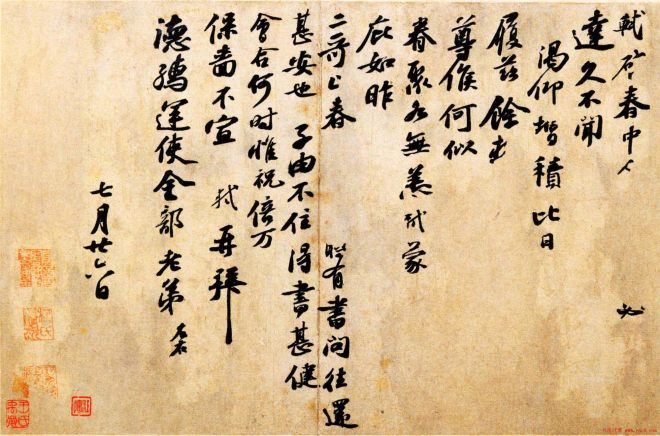 軾啓春中人 必
達久不聞
渴仰增積比日
履茲餘
尊候何似
眷聚各無恙軾蒙
庇如昨
二哥上春 時有書問往還
甚安也 子由不住得書甚健
會合何時惟祝倍万
保嗇不宣 軾再拜
德孺運使金部老弟
七月廿六日